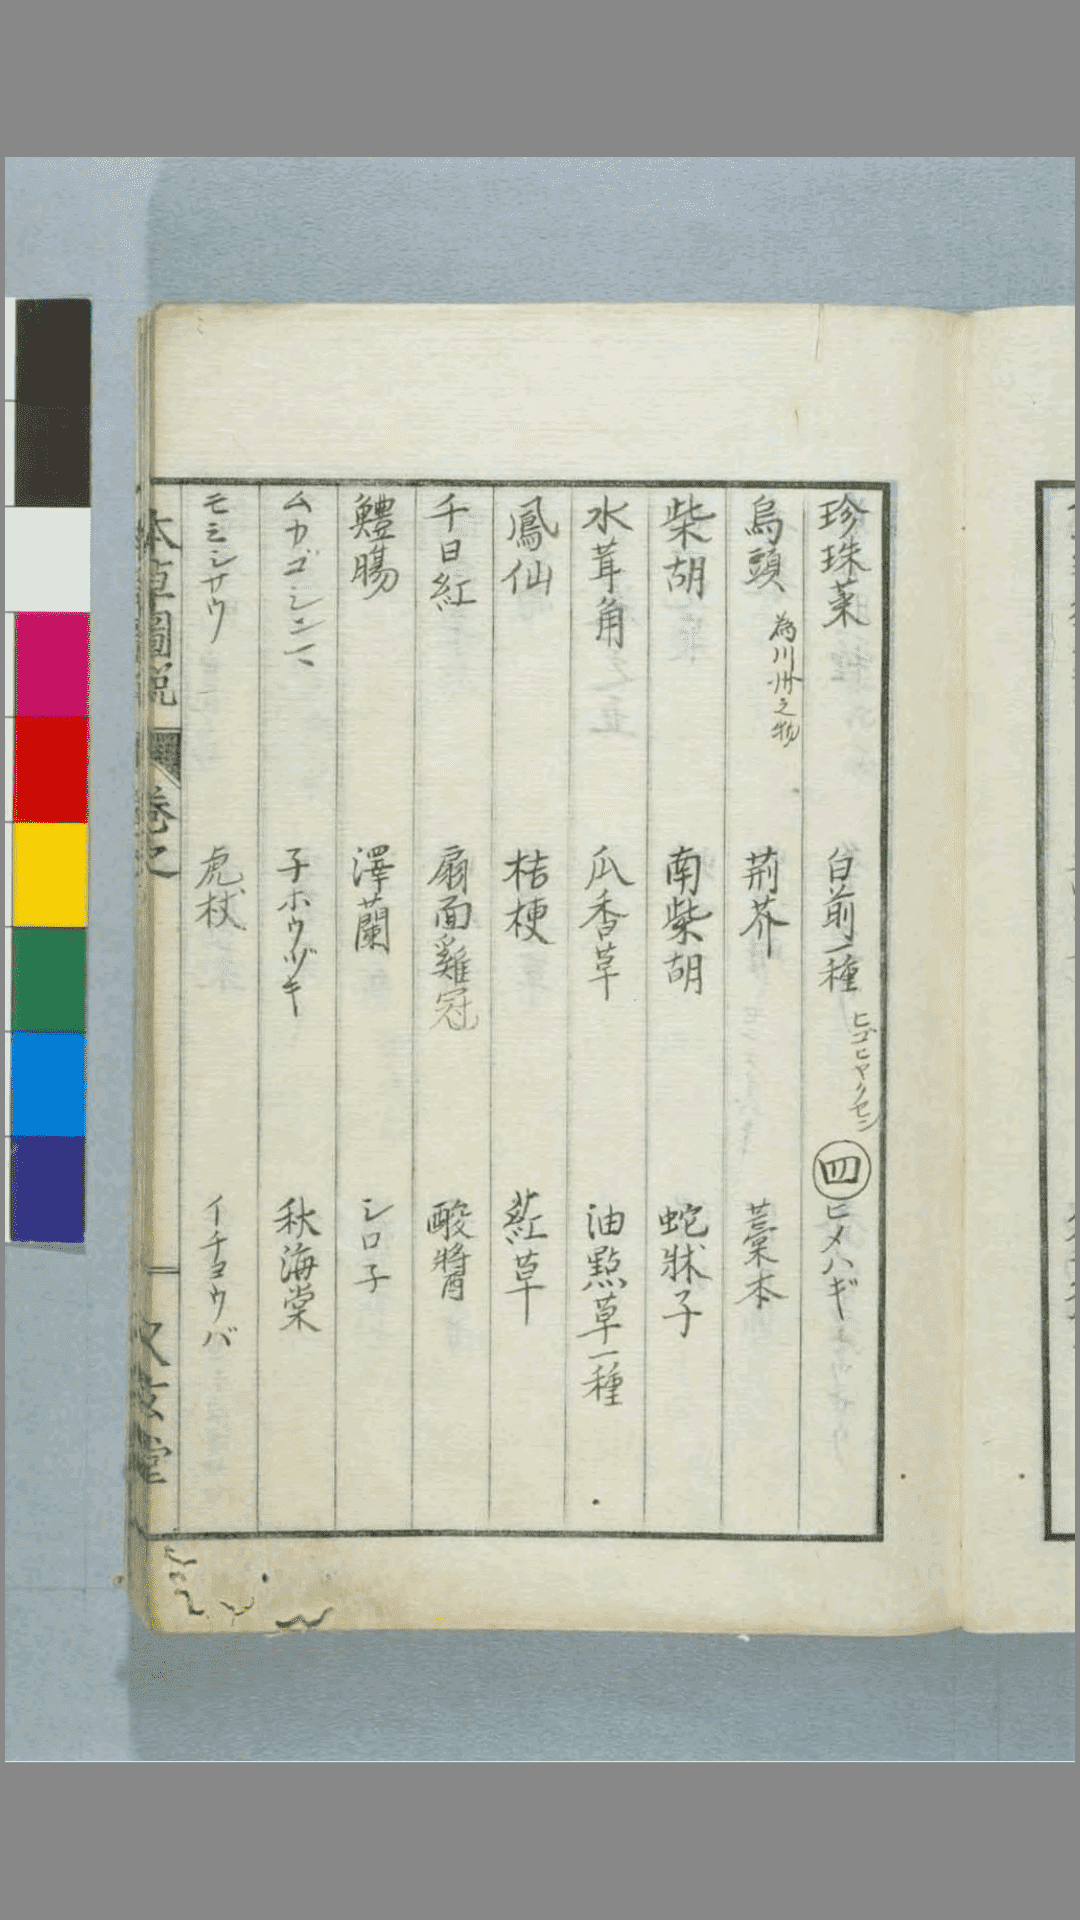 珍珠菜 白前一種 ヒゴヒャクセン ㊃ ヒメハギ
烏頭 為川州之物 荊芥 藁本
柴胡 南柴胡 蛇牀子
水茸角 瓜香草 油點草一種
鳳仙 桔梗 葒草
千日紅 扇面雞冠 酸醬
鱧腸 澤蘭 シロ子
ムカゴ 子ホウヅキ 秋海棠
モミシサウ 虎杖 イチヨウバ
本草圖説 卷之